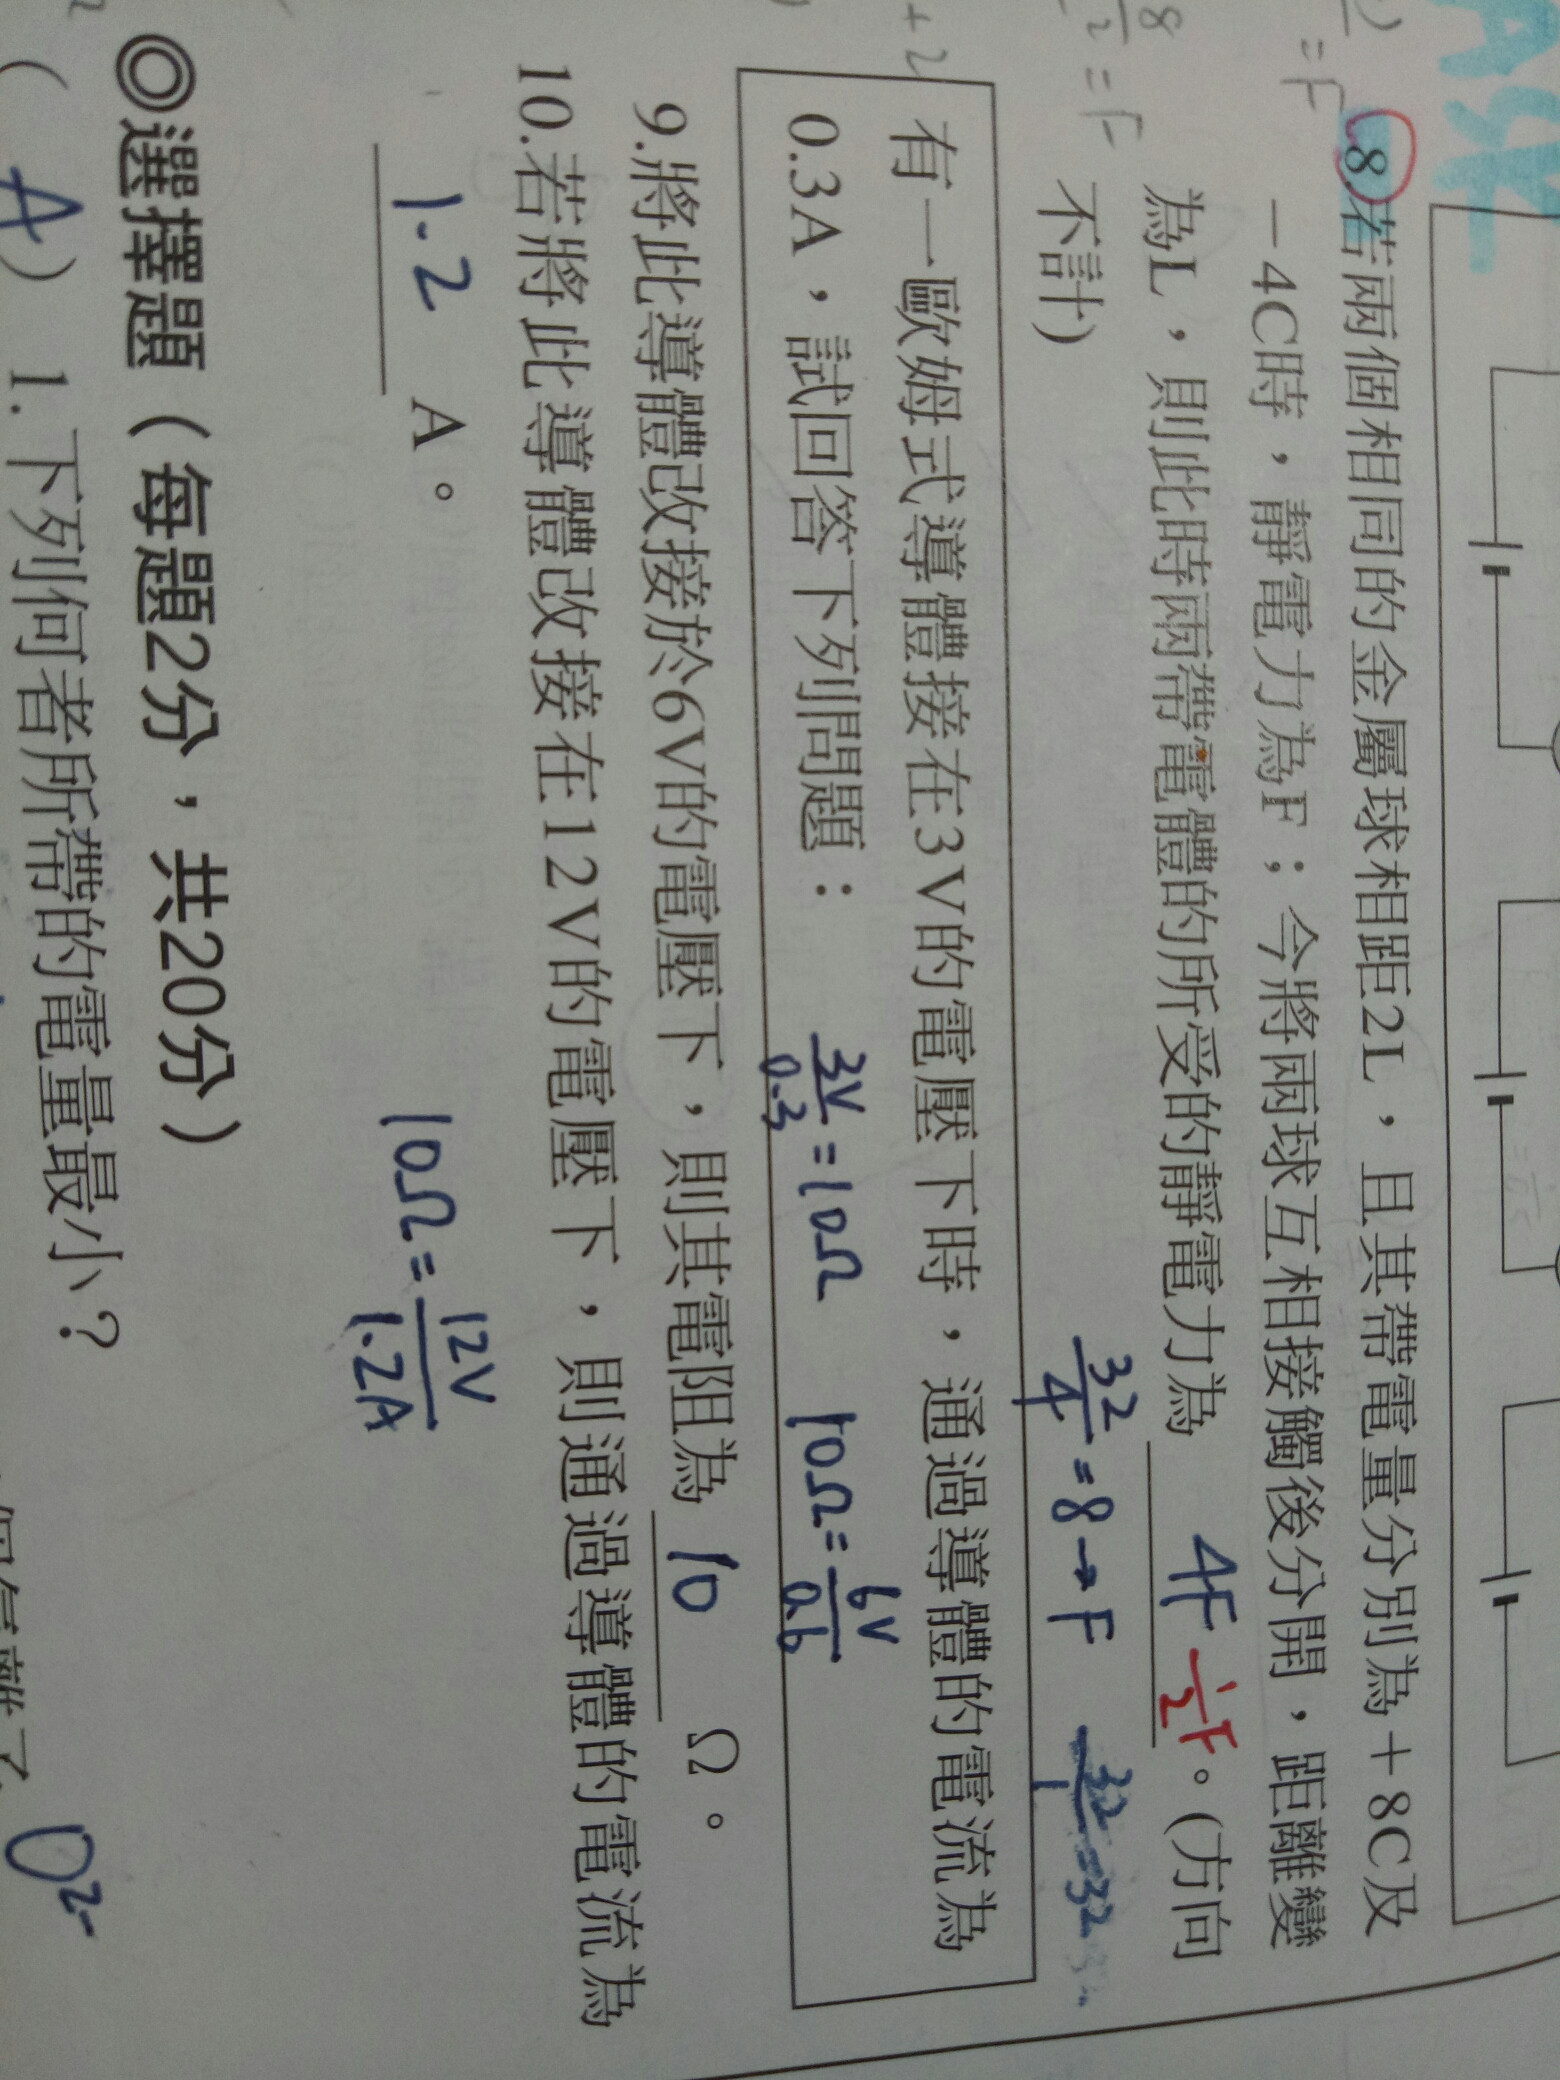 8.若兩個相同的金屬球相距2L，且其帶電量分別為＋8C及
－4C時，靜電力為F；今將兩球互相接觸後分開，距離變
為L，則此時兩帶電體的所受的靜電力為 4F 1/2F。(方向
不計)
32/4=8→F
32/1=32
8/2=F
=F
+2
有一歐姆式導體接在3V的電壓下時，通過導體的電流為
0.3A，試回答下列問題：
3V/0.3=10Ω 10Ω=6V/0.6
9.將此導體改接於6V的電壓下，則其電阻為 10 Ω。
10.若將此導體改接在12V的電壓下，則通過導體的電流為
1.2 A。
10Ω=12V/1.2A
◎選擇題（每題2分，共20分）
(A) 1.下列何者所帶的電量最小？
O²⁻